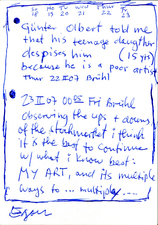 Su Mo Tue Wed Thu Fri
18 19 20 21 22 23
Günter Olbert told me
that his teenage daughter
despises him (15 yrs)
because he is a poor artist
Thur 22 II 07 Brühl
23 II 07 00:55 Fri Brühl
observing the ups + downs
of the stockmarket i think
it is the best to continue
w/ what i know best:
MY ART, and its multiple
ways to ... multiply ....